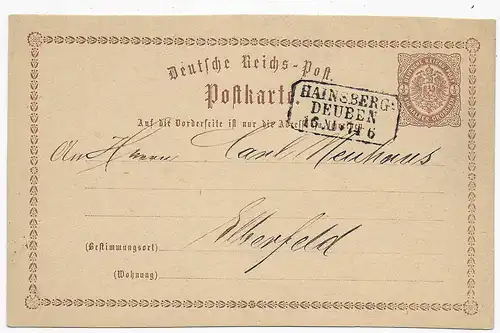 Deutsche Reichs-Post.
Postkarte
HAINSBERG-
DEUBEN
16 74 6
Auf die Vorderseite ist nur die
An Herrn Carl Neuhaus
Elberfeld
(Bestimmungsort)
(Wohnung)